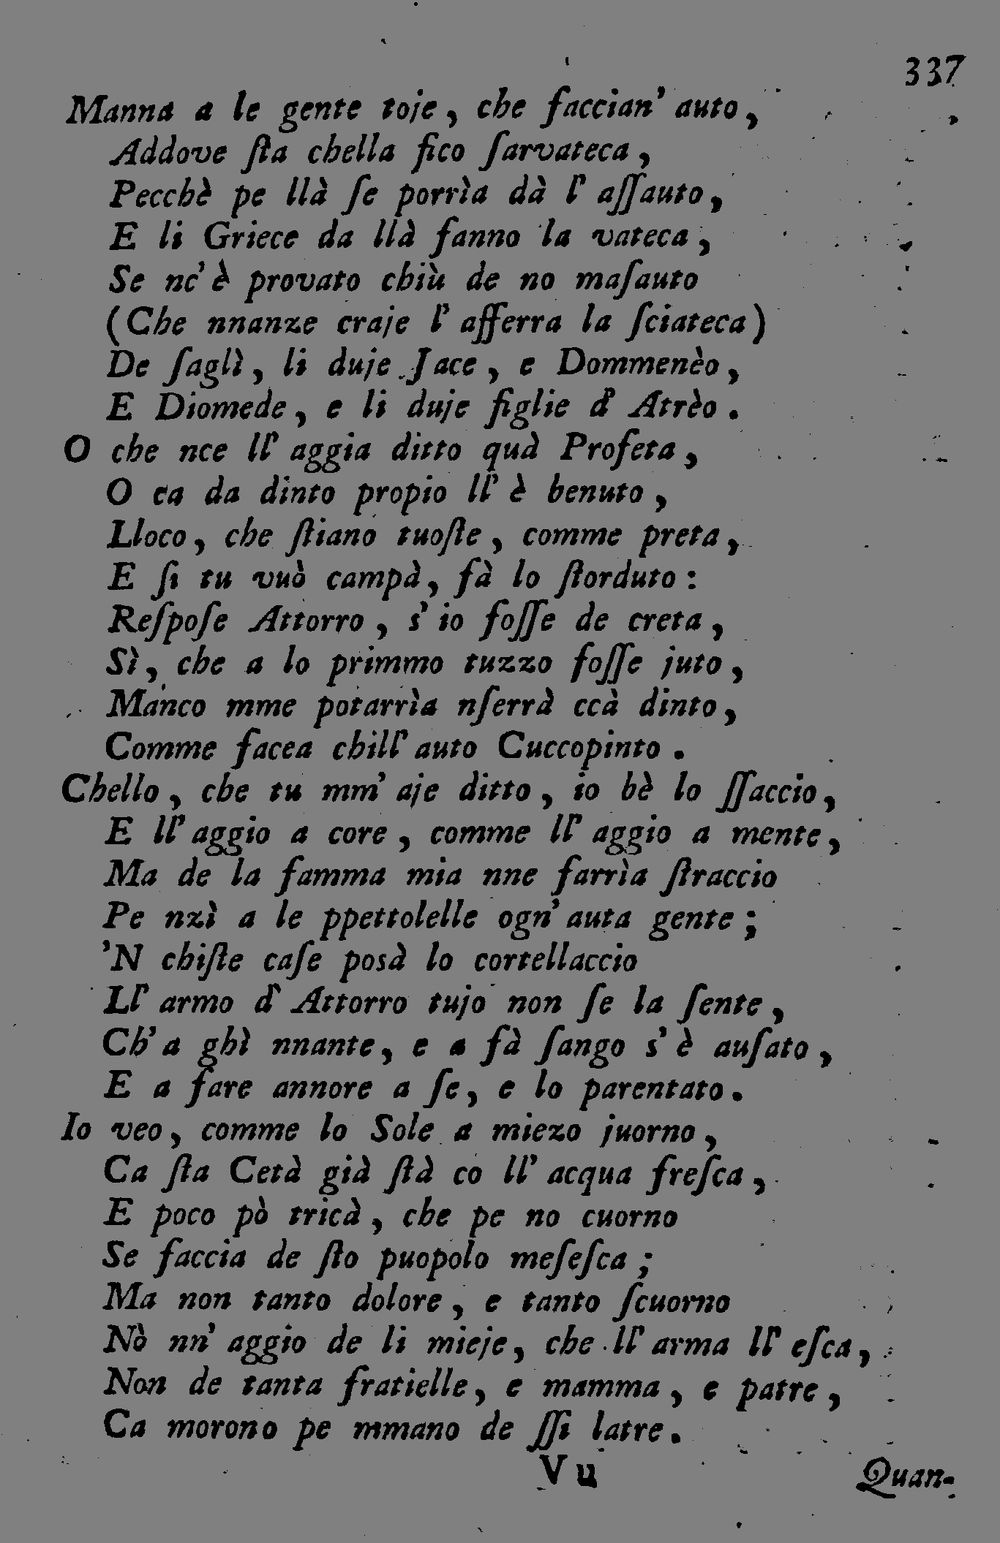 337
Manna a le gente toje, che faccian' auto,
Addove ſta chella fico ſarvateca,
Pecchè pe llà ſe porrìa dà l' aſſauto,
E li Griece da llà fanno la vateca,
Se nc' è provato chiù de no maſauto
(Che nnanze craje l' afferra la ſciateca)
De ſaglì, li duje Jace, e Dommenèo,
E Diomede, e li duje figlie d' Atrèo.
O che nce ll' aggia ditto quà Profeta,
O ca da dinto propio ll' è benuto,
Lloco, che ſtiano tuoſte, comme preta,
E ſi tu vuò campà, fà lo ſtorduto:
Reſpoſe Attorro, s' io foſſe de creta,
Sì, che a lo primmo tuzzo foſſe juto,
Manco mme potarrìa nſerrà ccà dinto,
Comme facea chill' auto Cuccopinto.
Chello, che tu mm' aje ditto, io bè lo ſſaccio,
E ll' aggio a core, comme ll' aggio a mente,
Ma de la famma mia nne farrìa ſtraccio
Pe nzì a le ppettolelle ogn' auta gente;
'N chiſte caſe posà lo cortellaccio
Ll' armo d' Attorro tujo non ſe la ſente,
Ch' a ghì nnante, e a fà ſango s' è auſato,
E a fare annore a ſe, e lo parentato.
Io veo, comme lo Sole a miezo juorno,
Ca ſta Cetà già ſtà co ll' acqua freſca,
E poco pò tricà, che pe no cuorno
Se faccia de ſto puopolo meſeſca;
Ma non tanto dolore, e tanto ſcuorno
Nò nn' aggio de li mieje, che ll' arma ll' eſca,
Non de tanta fratielle, e mamma, e patre,
Ca morono pe mmano de ſſi latre.
Vu Quan-